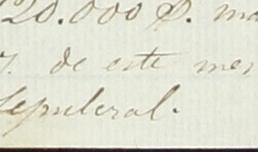 120.000 $. ma
7. de este mes
Sepulcral.